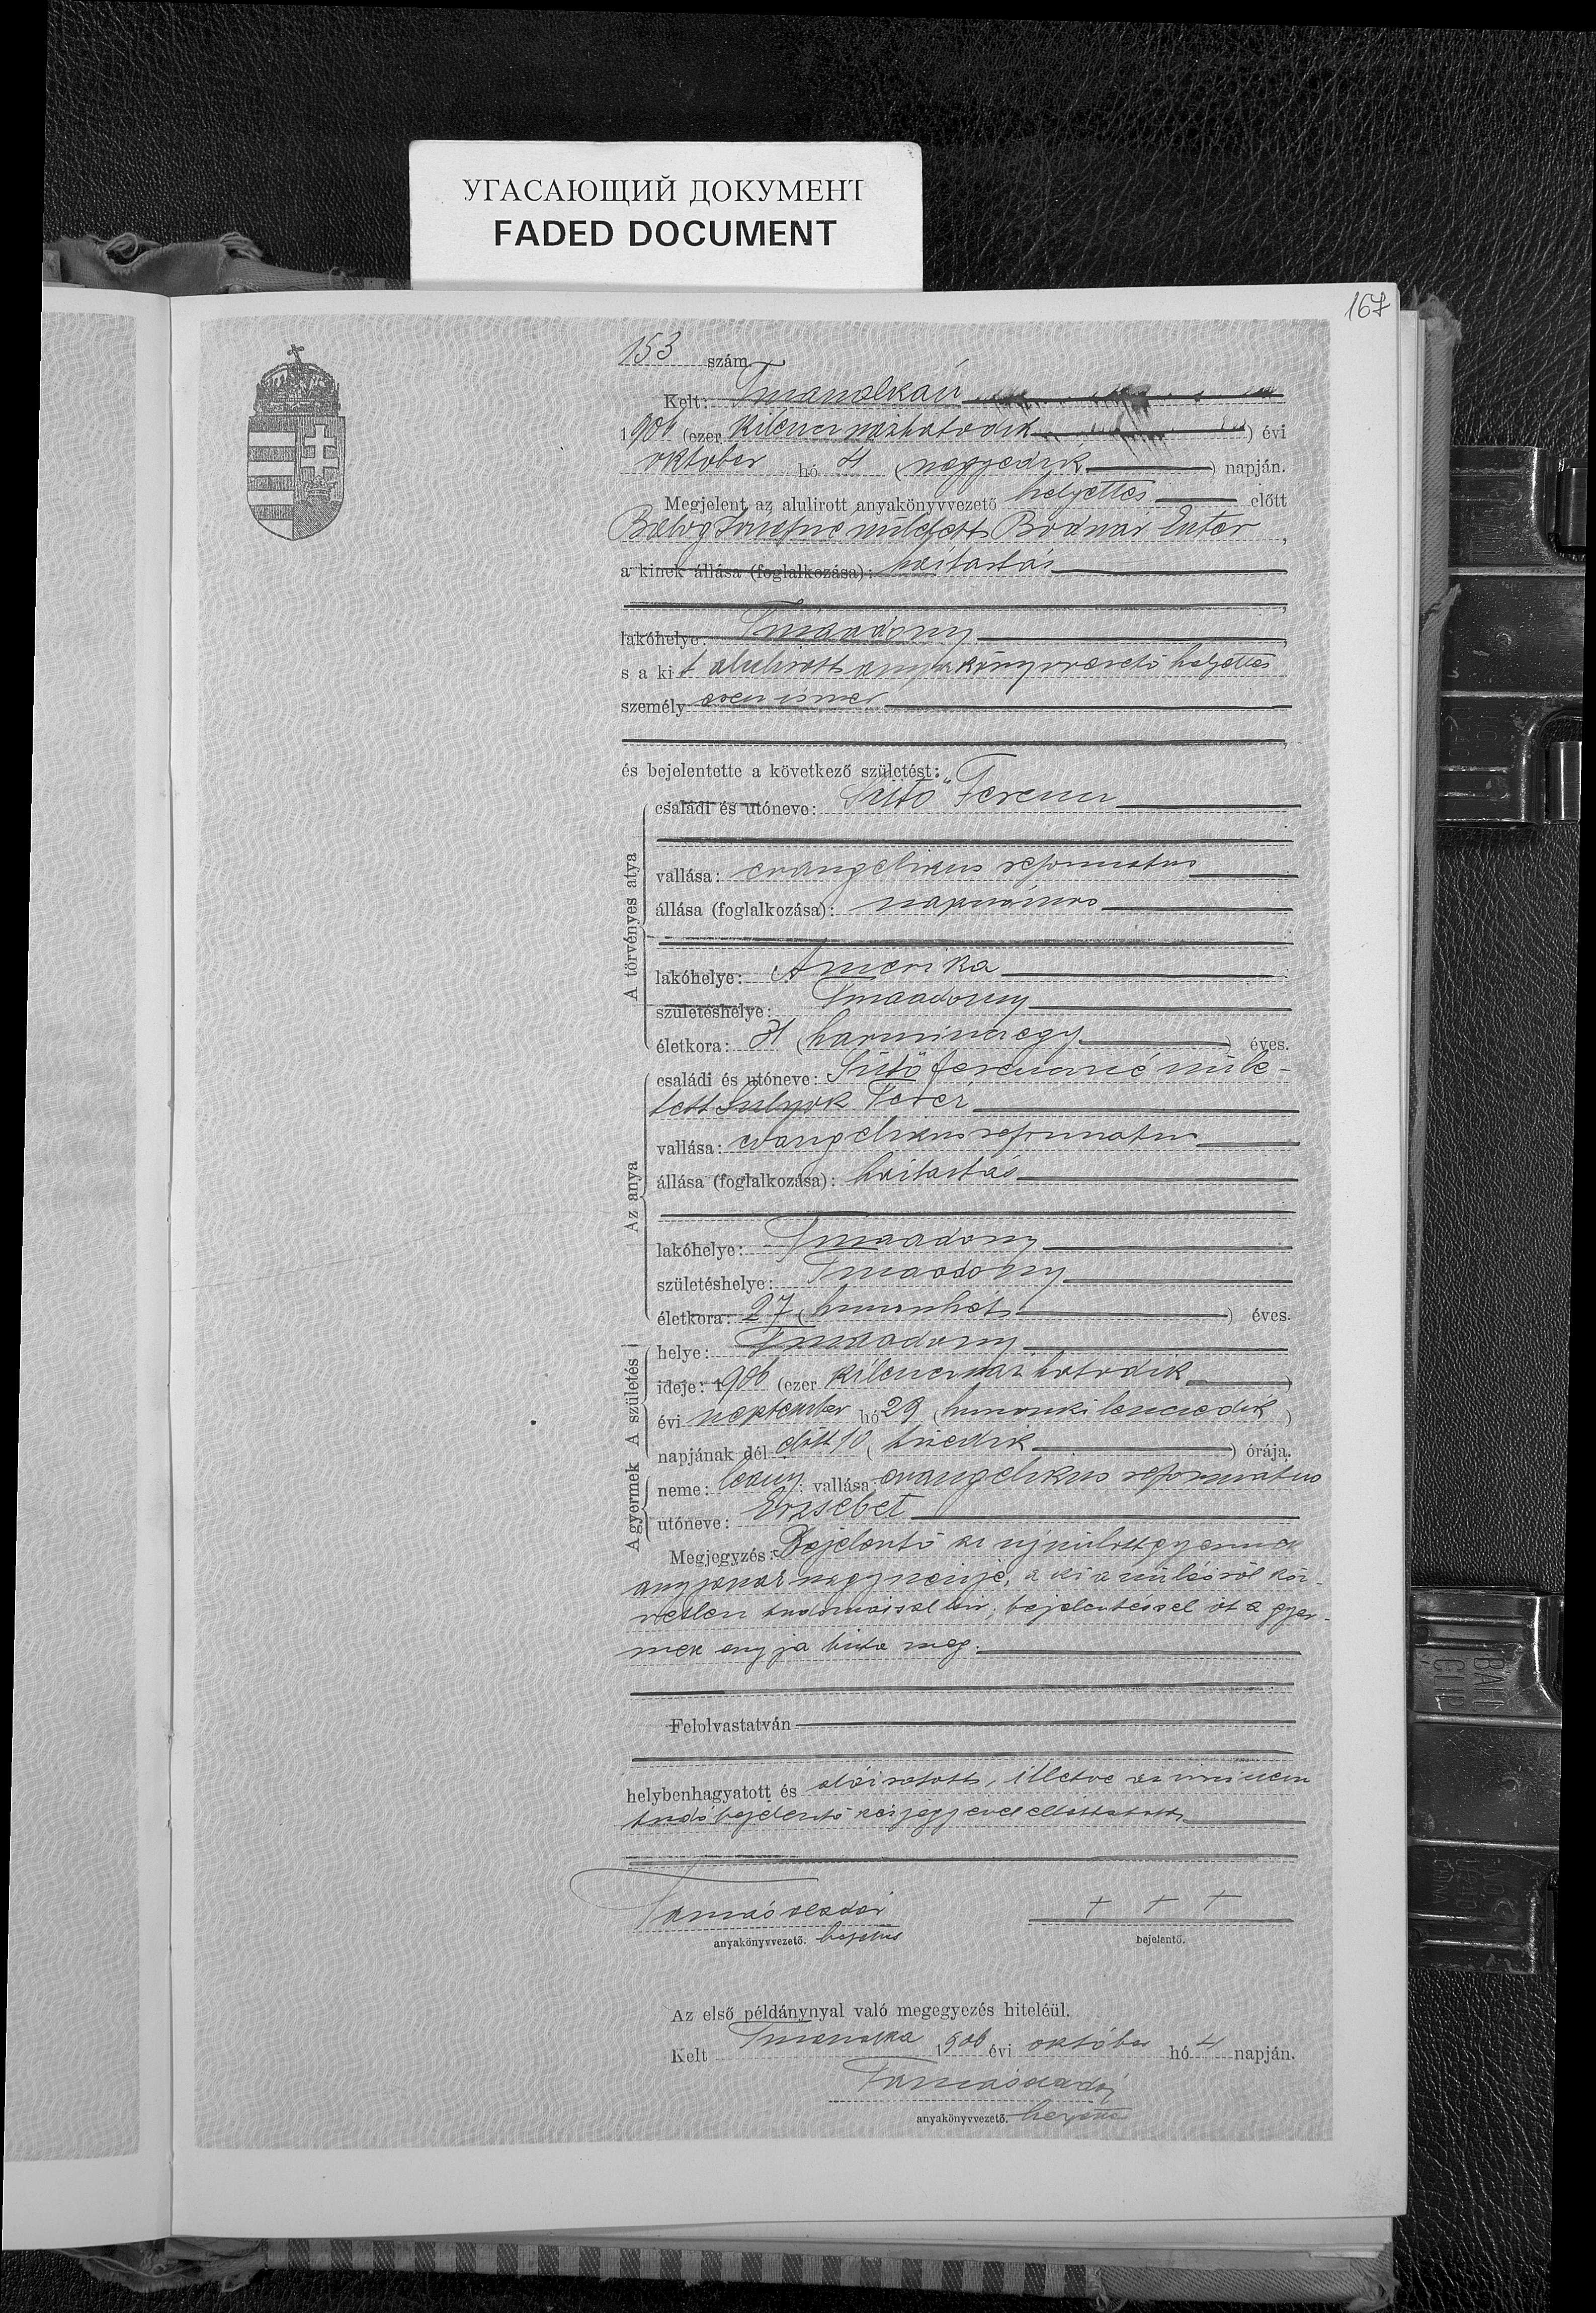 УГАСАЮЩИЙ ДОКУМЕНТ
FADED DOCUMENT
167
153 szám.
Kelt: Tiszasalkán
1906 (ezer kilenczszázhatodik) évi
október hó 4 (negyedik) napján.
Megjelent az alulirott anyakönyvvezető helyettes előtt
Balog Józsefné született Bodnár Eszter,
a kinek állása (foglalkozása): háztartás
lakóhelye: Tiszaadony,
s a kit alulirott anyakönyvvezető helyettes
személyesen ismer
és bejelentette a következő születést:
A törvényes atya
családi és utóneve: Sütő Ferencz
vallása: evangelikus reformatus
állása (foglalkozása): napszámos
lakóhelye: Amerika
születéshelye: Tiszaadony
életkora: 31 (harminczegy) éves.
Az anya
családi és utóneve: Sütő Ferenczné szüle-
tett Sulyok Teréz
vallása: evangelikus reformatus
állása (foglalkozása): háztartás
lakóhelye: Tiszaadony
születéshelye: Tiszaadony
életkora: 27 (huszonhét) éves.
A születés
helye: Tiszaadony
ideje: 1906 (ezer kilenczszázhatodik)
évi szeptember hó 29 (huszonkilenczedik)
napjának dél előtt 10 (tizedik) órája.
A gyermek
neme: leány, vallása: evangelikus reformatus
utóneve: Erzsébet
Megjegyzés: Bejelentő az ujszülött gyermek
anyjának nagynénje, a ki a szülésről köz-
vetlen tudomással bir, bejelentéssel őt a gyer-
mek anyja bizta meg.
Felolvastatván
helybenhagyatott és aláiratott, illetve az irni nem
tudó bejelentő kézjegyével elláttatott
anyakönyvvezető. helyettes
+ + +
bejelentő.
Az első példánynyal való megegyezés hiteléül.
Kelt Tiszasalka 1906 évi október hó 4 napján.
anyakönyvvezető. helyettes